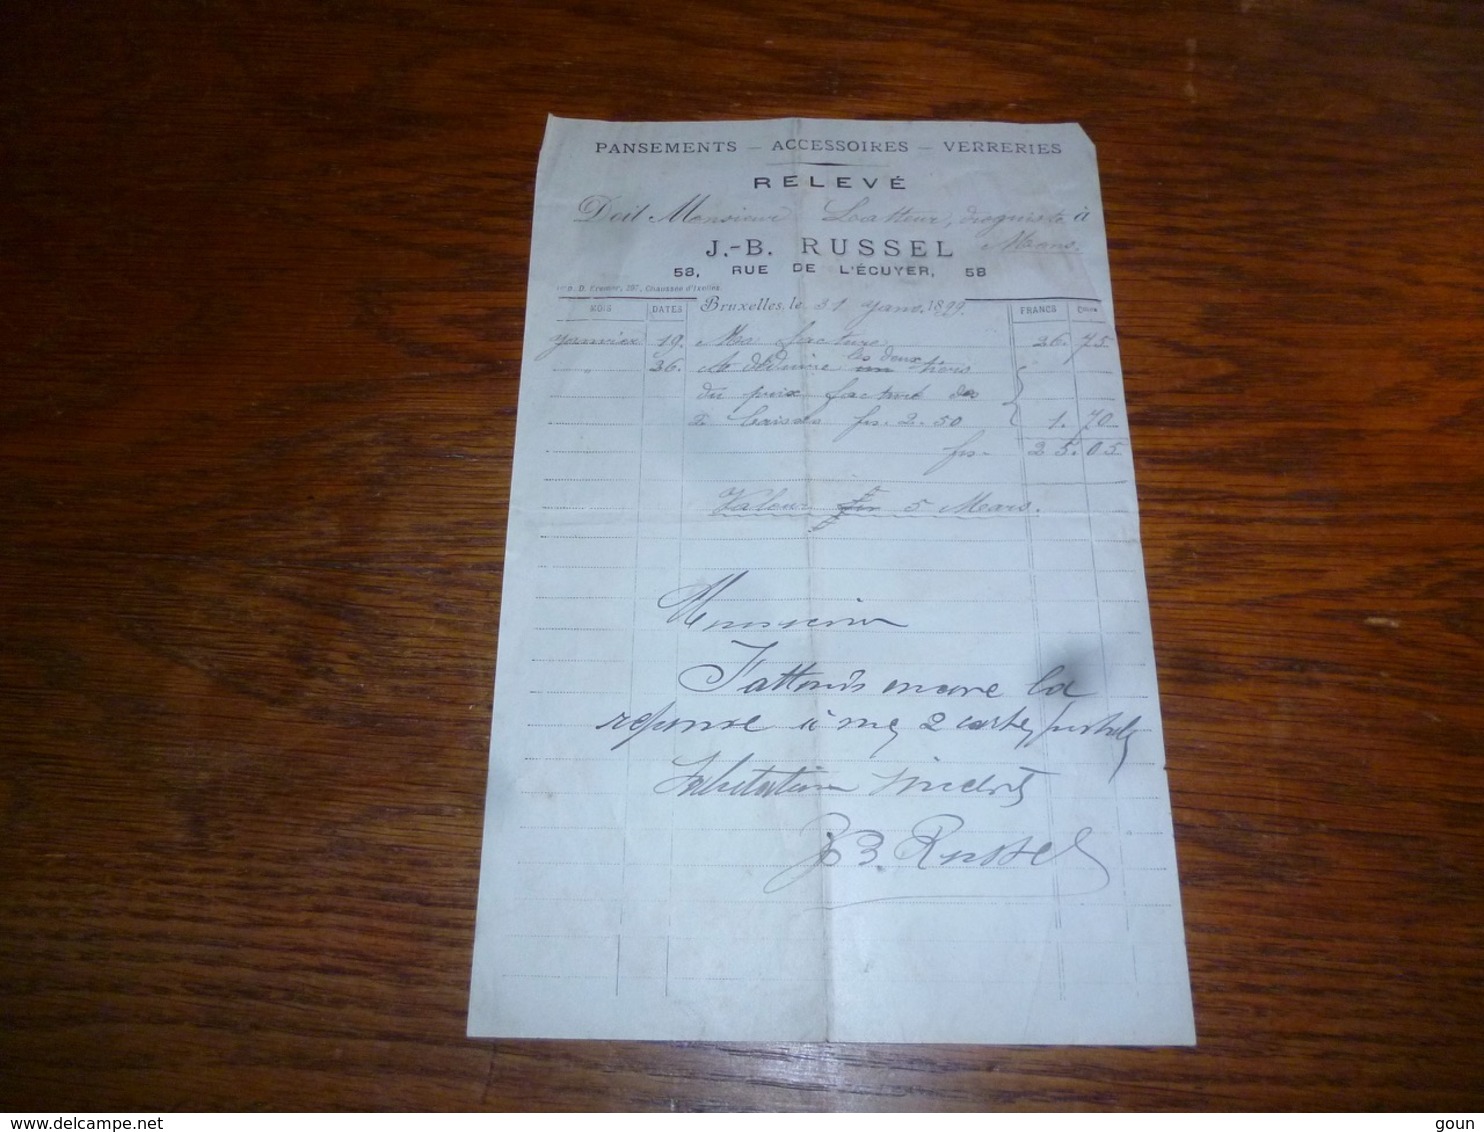 PANSEMENTS — ACCESSOIRES — VERRERIES
RELEVÉ
Doit Monsieur Latteur, droguiste à
Mons.
J.-B. RUSSEL
58, RUE DE L'ÉCUYER, 58
Imp. D. Cremer, 207, Chaussée d'Ixelles
Bruxelles, le 31 Janv. 1899.
MOIS DATES FRANCS
Janvier 19. Ma facture 26. 75
" 26. A déduire les deux un tiers
du prix facturé des
2 caisses frs. 2.50 1. 70
frs. 25. 05
Valeur 5 Mars.
Monsieur
J'attends encore la
réponse à mes 2 cartes postales
Salutations sincères
JB. Russel
delcampe.net
goun